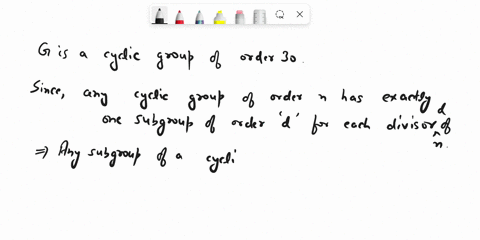 G is a cyclic group of order 30.
Since, any cyclic group of order n has exactly
one subgroup of order 'd' for each divisor d of n.
⇒ Any subgroup of a cycli